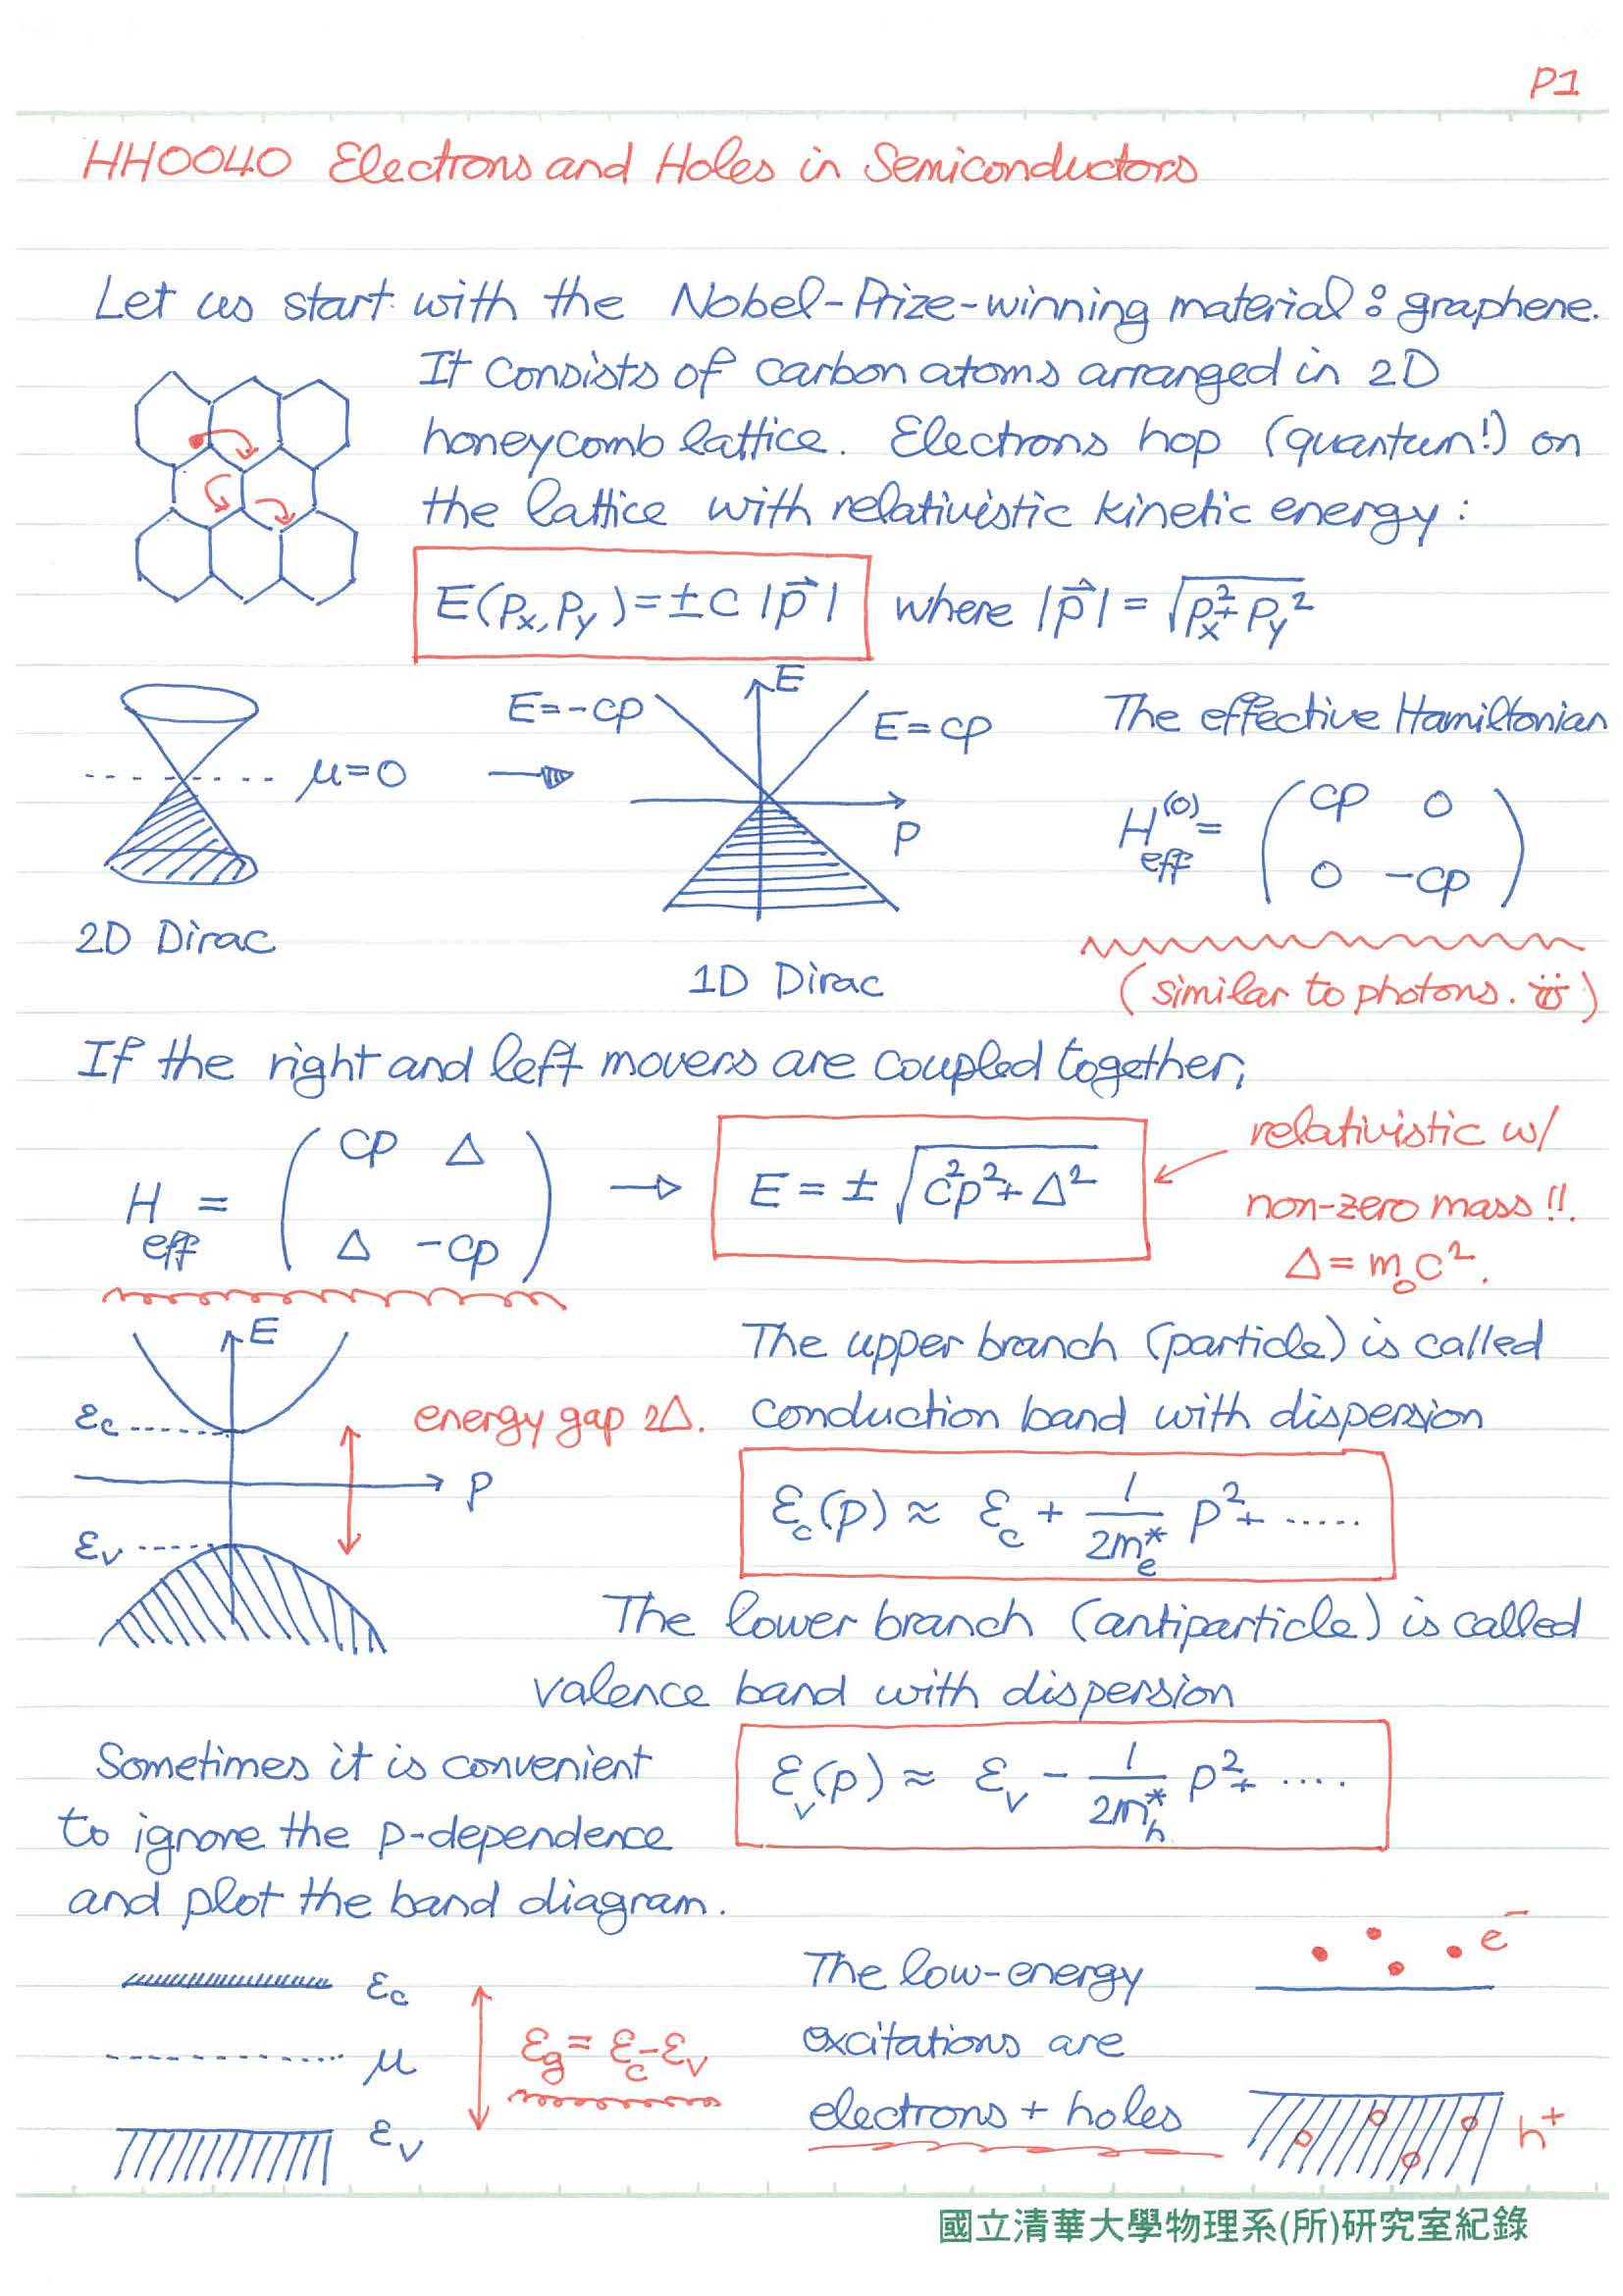 P1
HH0040 Electrons and Holes in Semiconductors
Let us start with the Nobel-Prize-winning material: graphene.
It consists of carbon atoms arranged in 2D
honeycomb lattice. Electrons hop (quantum!) on
the lattice with relativistic kinetic energy:
E(Px, Py) = ±c |p⃗| where |p⃗| = √(Px² + Py²)
μ=0
2D Dirac
E=-cp
E
E=cp
p
1D Dirac
The effective Hamiltonian
H_eff^(0) = ( cp 0
0 -cp )
(similar to photons. )
If the right and left movers are coupled together,
H_eff = ( cp Δ
Δ -cp )
→ E = ± √(c²p² + Δ²)
relativistic w/
non-zero mass !!
Δ = m₀c².
E
εc
p
εv
energy gap 2Δ.
The upper branch (particle) is called
conduction band with dispersion
εc(p) ≈ εc + 1/(2m*e) p² + .....
The lower branch (antiparticle) is called
valence band with dispersion
εv(p) ≈ εv - 1/(2m*h) p² + ....
Sometimes it is convenient
to ignore the p-dependence
and plot the band diagram.
εc
μ
εv
εg = εc - εv
The low-energy
excitations are
electrons + holes
e⁻
h⁺
國立清華大學物理系(所)研究室紀錄